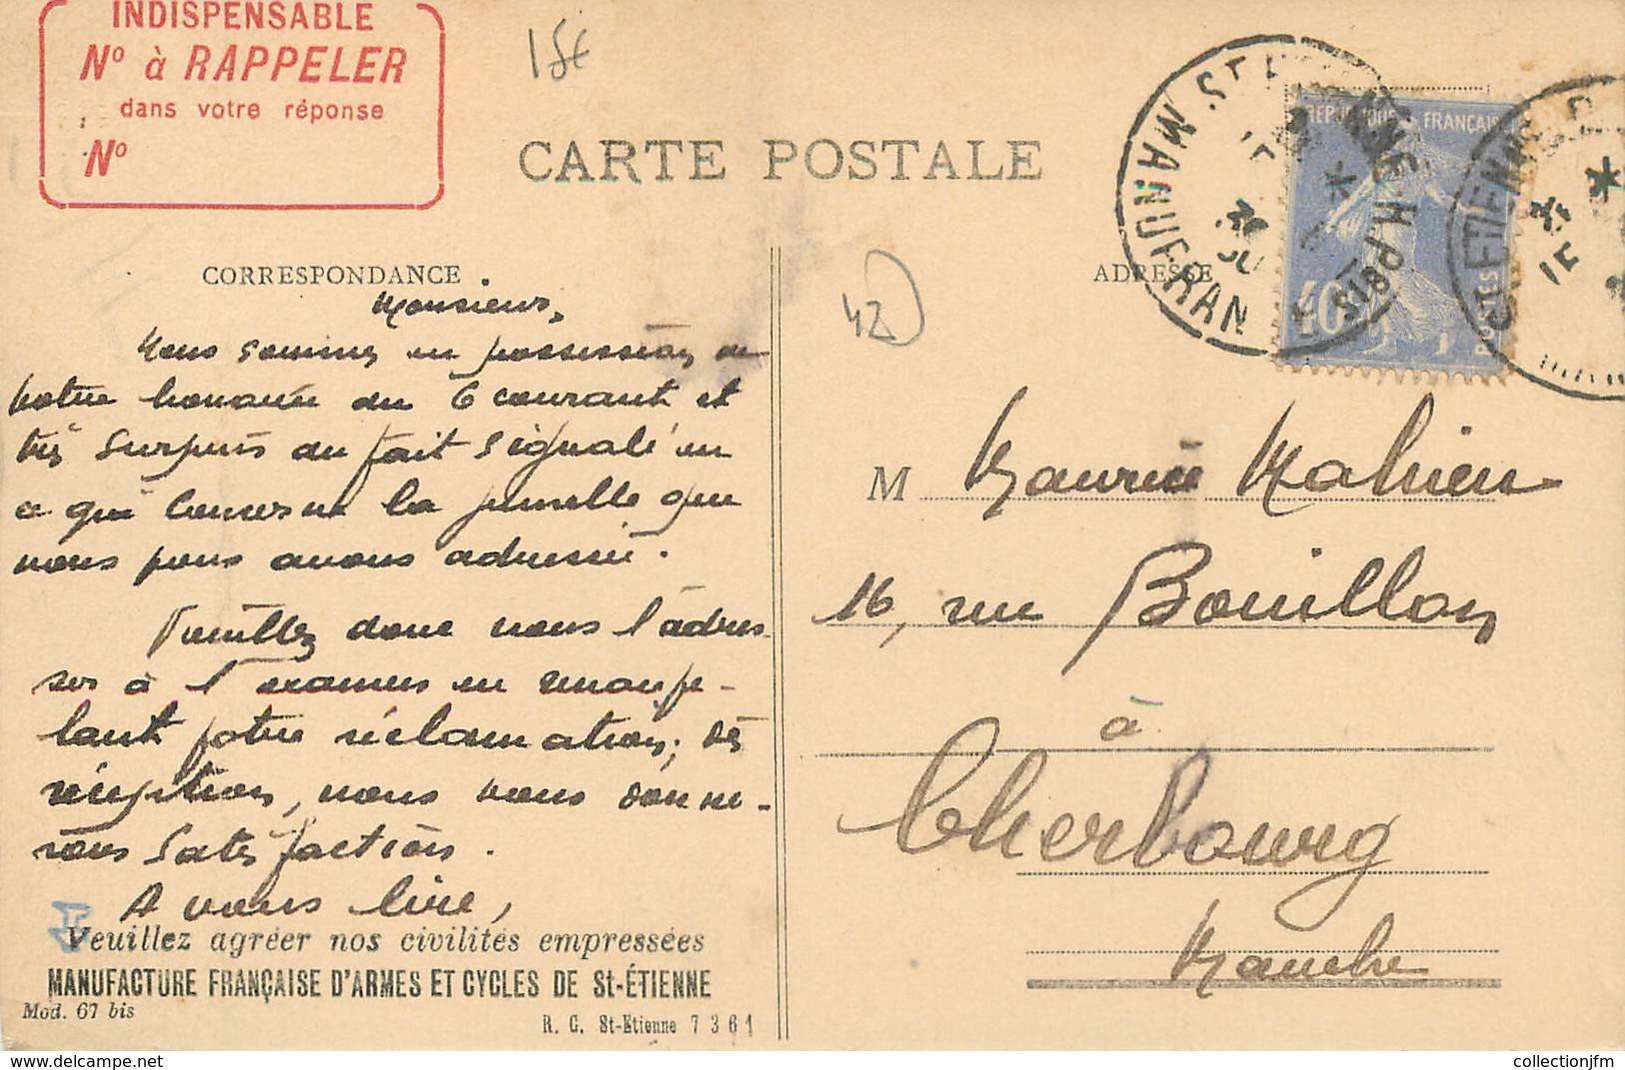 INDISPENSABLE
Nº à RAPPELER
dans votre réponse
Nº
15€
CARTE POSTALE
CORRESPONDANCE
ADRESSE
42
REPUBLIQUE FRANÇAISE
POSTES
40c
MANUFRAN
Monsieur,
Nous sommes en possession de
votre honorée du 6 courant et
très surpris du fait signalé en
ce qui concerne la jumelle que
nous vous avons adressée.
Veuillez donc nous l'adres
ser à l'examen en rappe-
lant votre réclamation; dès
réception, nous vous donne-
rons satisfaction.
A vous lire,
Veuillez agréer nos civilités empressées
MANUFACTURE FRANÇAISE D'ARMES ET CYCLES DE St-ÉTIENNE
Mod. 67 bis
R. C. St-Etienne 7361
M Maurice Mahieu
16, rue Bouillon
à
Cherbourg
Manche
collectionjfm